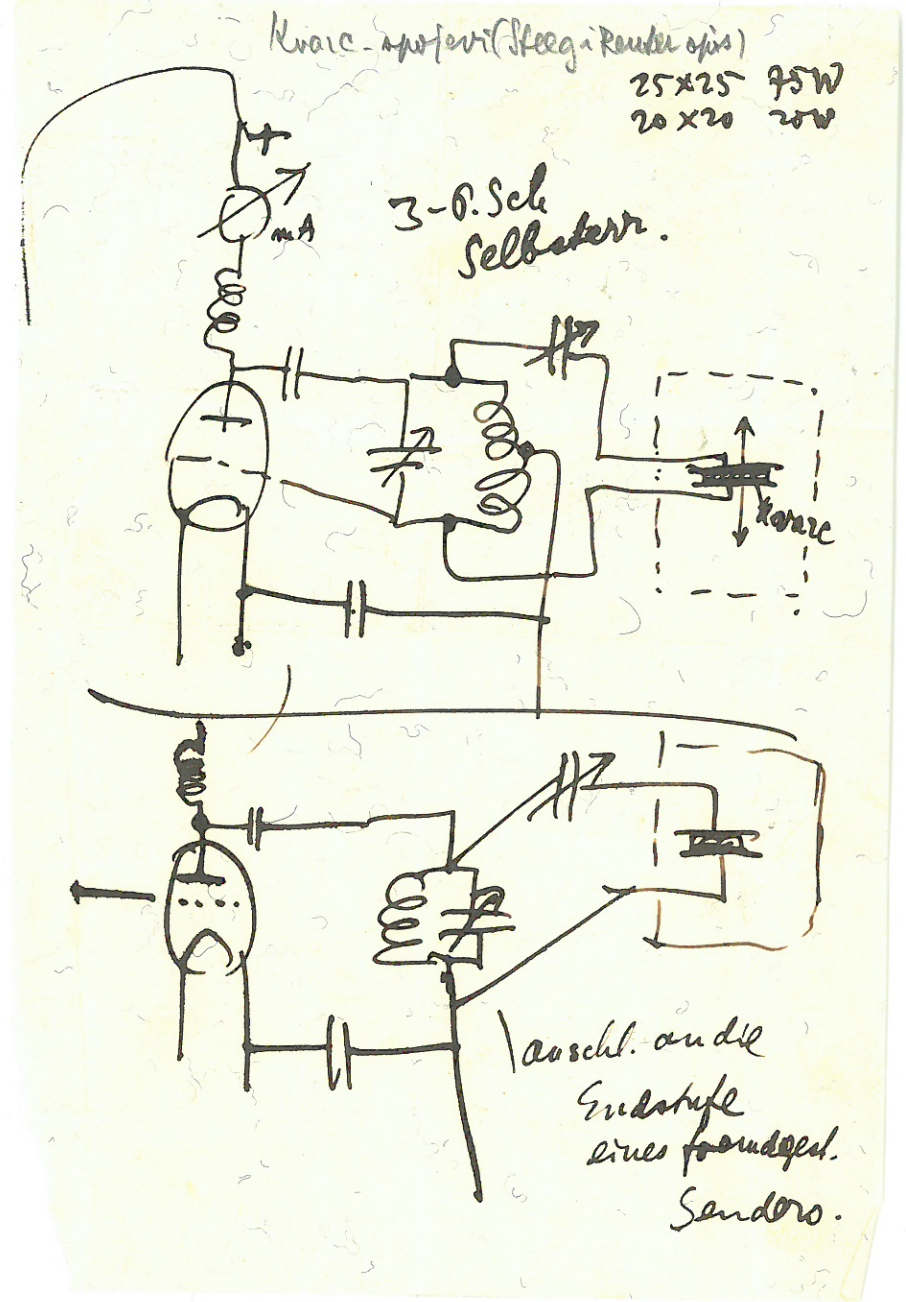 Kvarc-spojevi (Steeg i Reuter opis)
25x25 75W
20x20 20W
+
mA
3-P.Sch
Selbsterr.
Kvarc
anschl. an die
Endstufe
eines fremdgest.
Senders.